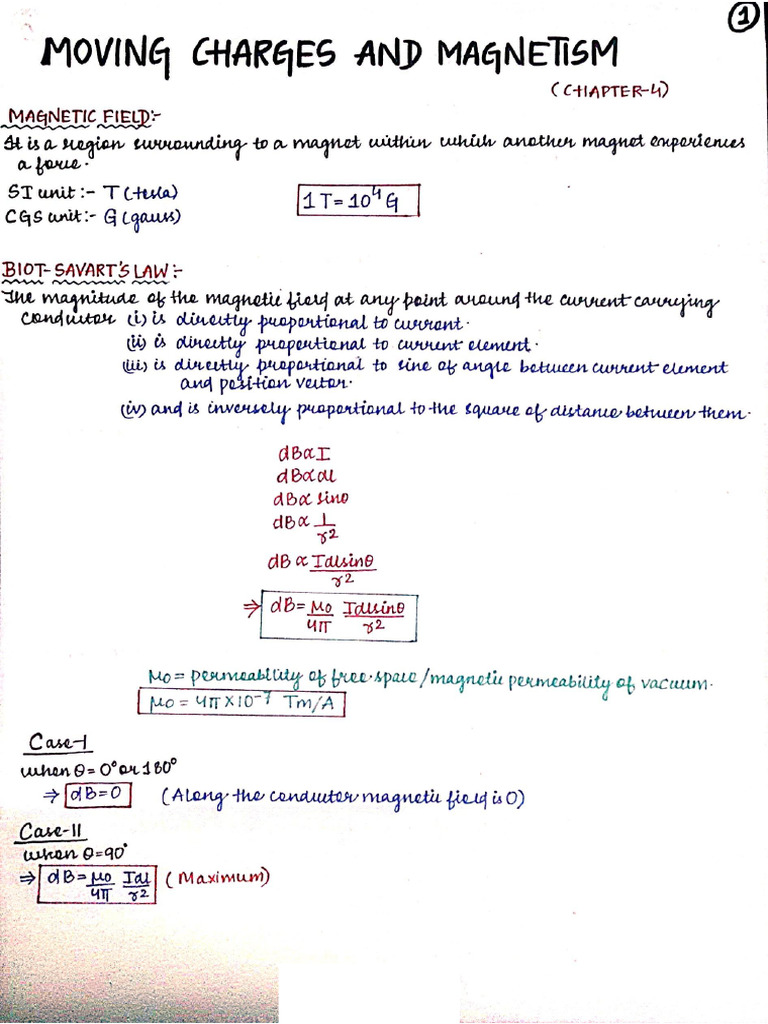 1
MOVING CHARGES AND MAGNETISM
(CHAPTER-4)
MAGNETIC FIELD:-
It is a region surrounding to a magnet within which another magnet experiences
a force.
SI unit :- T (tesla)
1 T = 10⁴ G
CGS unit :- G (gauss)
BIOT-SAVART'S LAW :-
The magnitude of the magnetic field at any point around the current carrying
conductor (i) is directly proportional to current.
(ii) is directly proportional to current element.
(iii) is directly proportional to sine of angle between current element
and position vector.
(iv) and is inversely proportional to the square of distance between them.
dB ∝ I
dB ∝ dl
dB ∝ sinθ
dB ∝ 1/r²
dB ∝ Idlsinθ/r²
⇒ dB = μ₀/4π Idlsinθ/r²
μ₀ = permeability of free space/magnetic permeability of vacuum.
μ₀ = 4π×10⁻⁷ Tm/A
Case-I
when θ = 0° or 180°
⇒ dB = 0 (Along the conductor magnetic field is 0)
Case-II
when θ = 90°
⇒ dB = μ₀/4π Idl/r² (Maximum)